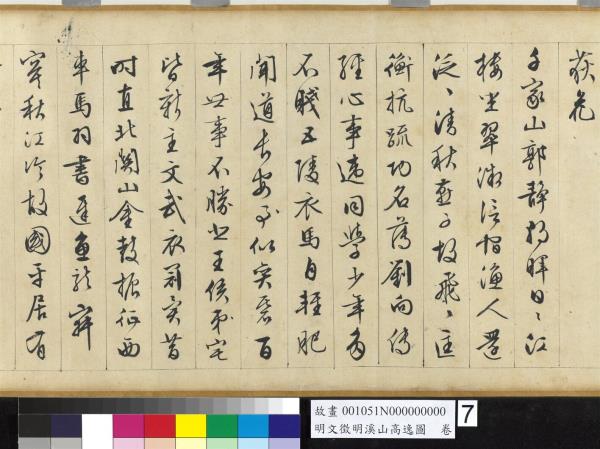 荻花
千家山郭靜朝暉日〻江
樓坐翠微信宿漁人還
泛〻清秋燕子故飛〻匡
衡抗疏功名薄劉向傳
經心事違同學少年多
不賤五陵衣馬自輕肥
聞道長安似奕碁百
年世事不勝悲王侯第宅
皆新主文武衣冠異昔
時直北關山金鼓振征西
車馬羽書遲魚龍寂
寞秋江冷故國平居有
故畫 001051N000000000
明文徵明溪山高逸圖 卷
7